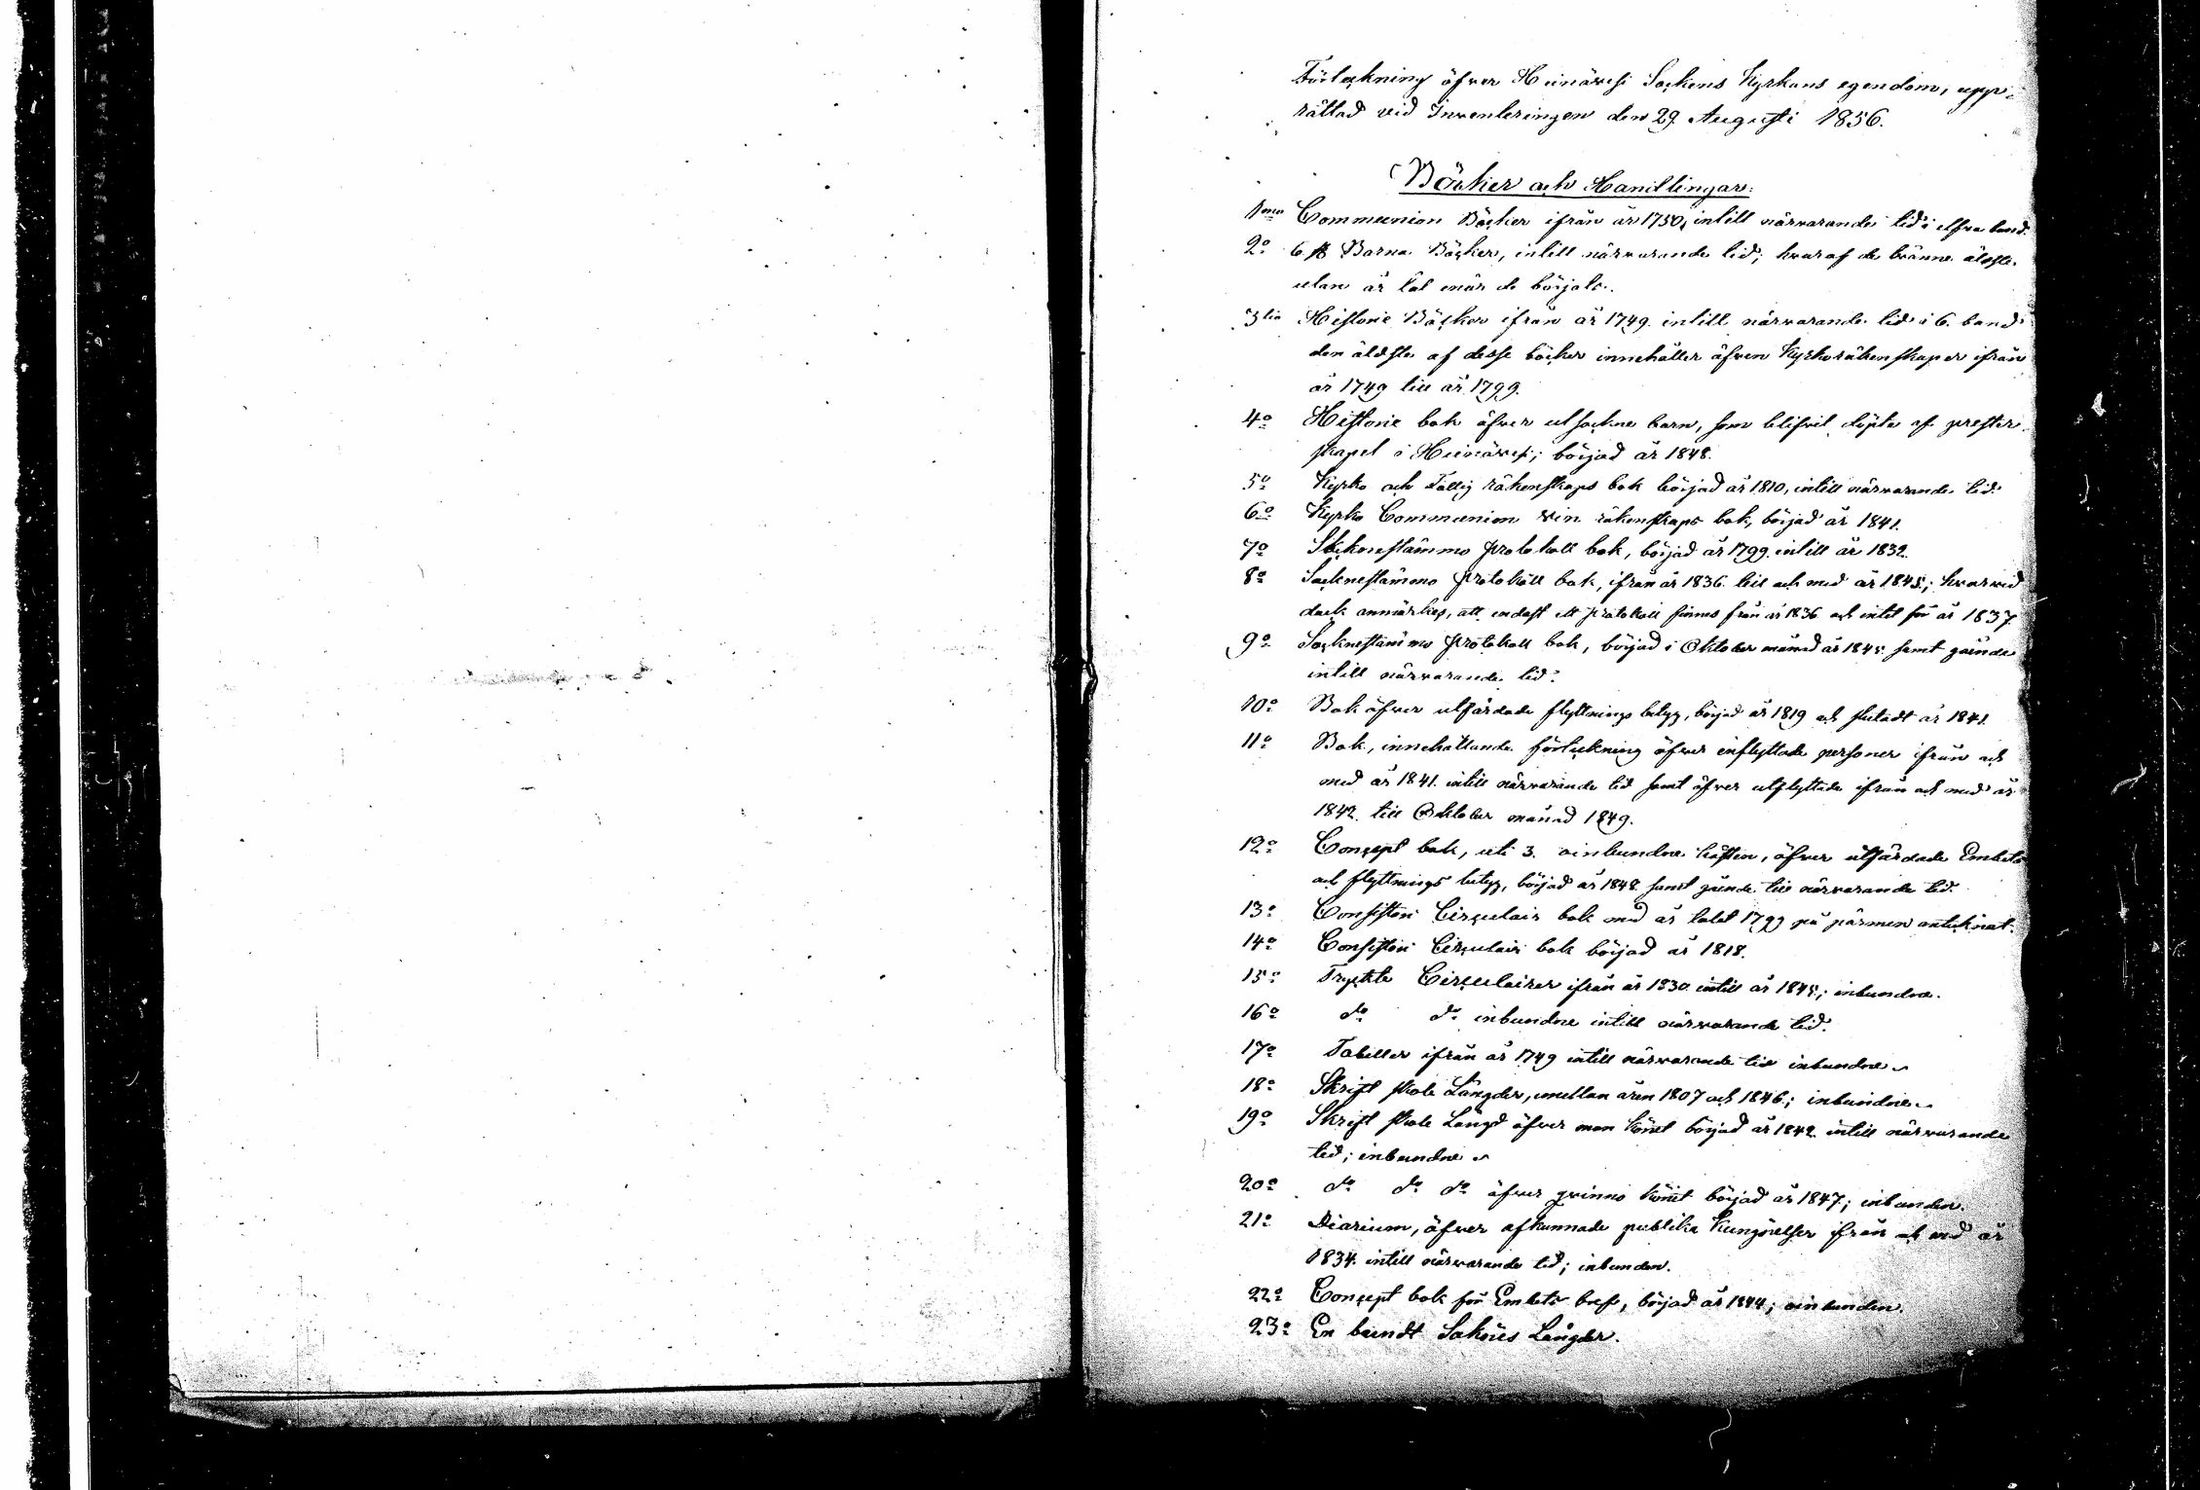 Förteckning öfver Heinävesi Sockens Kyrkans egendom, upp-
rättad vid Inventeringen den 29 Augusti 1856.
Böcker och Handlingar:
1mo Communion Böcker ifrån år 1750, intill närvarande tid i elfva band.
2o 6 st Barna Böcker, intill närvarande tid; hvaraf de tvänne äldste
utan år tal när de börjats.
3tio Historie Böcker ifrån år 1749 intill närvarande tid i 6 band
den äldste af desse böcker innehåller äfven Kyrkoräkenskaper ifrån
år 1749 till år 1799.
4o Historie bok öfver utsockne barn, som blifvit döpte af prester-
skapet i Heinävesi; börjad år 1848.
5o Kyrko och Fattig räkenskaps bok börjad år 1810, intill närvarande tid.
6o Kyrko Communion vin räkenskaps bok, börjad år 1841.
7o Sockenstämmo protokoll bok, börjad år 1799 intill år 1832.
8o Socknestämmo protokoll bok, ifrån år 1836 till och med år 1845; hvarvid
dock anmärkes, att endast ett protokoll finnes från år 1836 och intet för år 1837.
9o Socknestämmo protokoll bok, börjad i Oktober månad år 1845 samt gående
intill närvarande tid.
10o Bok öfver utfärdade flyttnings betyg, börjad år 1819 och slutadt år 1841.
11o Bok, innehållande förteckning öfver inflyttade personer ifrån och
med år 1841 intill närvarande tid samt öfver utflyttade ifrån och med år
1842 till Oktober månad 1849.
12o Concept bok, uti 3 oinbundne häften, öfver utfärdade Embets
och flyttnings betyg, börjad år 1848 samt gående till närvarande tid.
13o Consistorii Circulair bok med år talet 1799 på pärmen antecknat.
14o Consistorii Circulair bok börjad år 1818.
15o Tryckte Circulairer ifrån år 1830 intill år 1845; inbundne.
16o do do inbundne intill närvarande tid.
17o Tabeller ifrån år 1749 intill närvarande tid inbundne
18o Skrift skole Längder, mellan åren 1807 och 1846; inbundne
19o Skrift skole Längd öfver man könet börjad år 1842 intill närvarande
tid; inbundne
20o do do do öfver qvinno könet börjad år 1847; inbunden.
21o Diarium, öfver afkunnade publika Kungörelser ifrån och med år
1834 intill närvarande tid; inbunden.
22o Concept bok för Embets bref, börjad år 1844; oinbunden.
23o En bundt Längder.